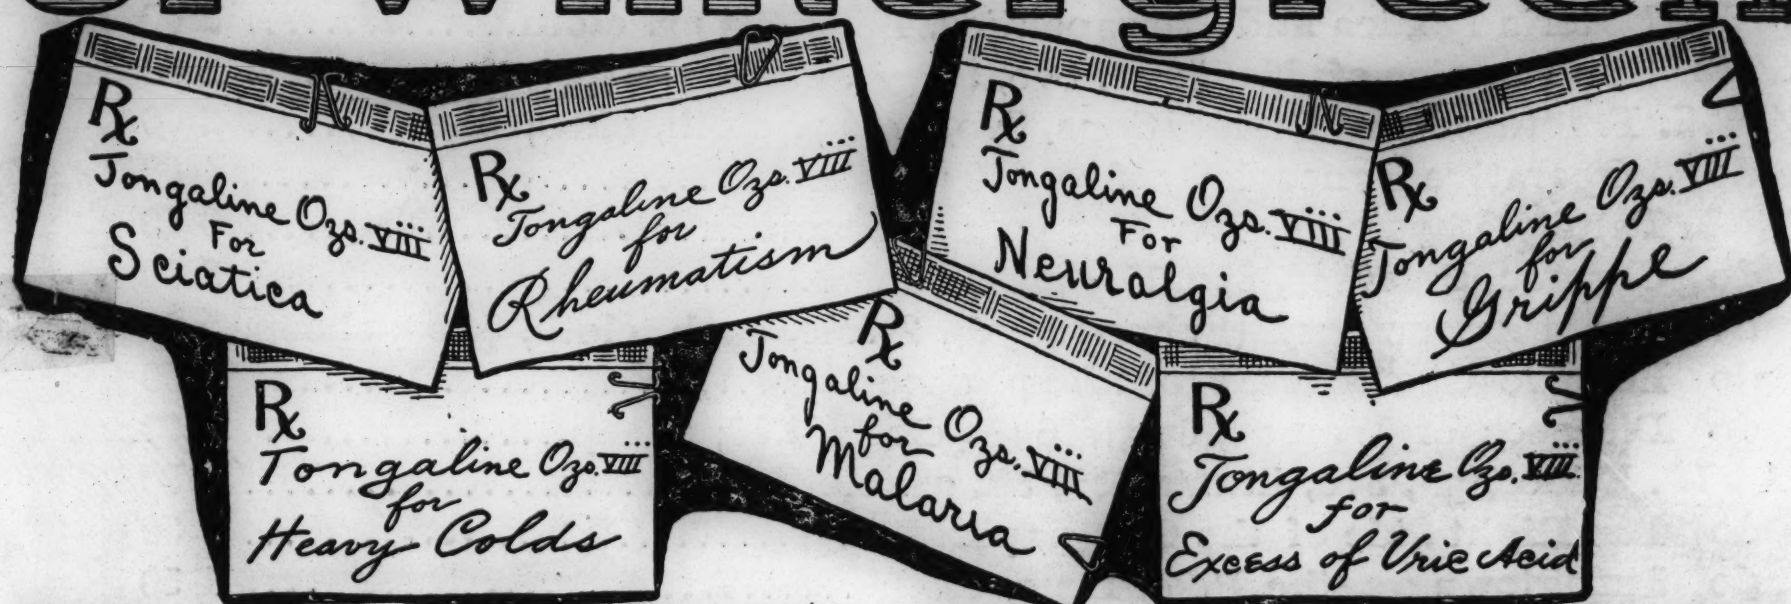 of Wintergreen
Rx
Tongaline Ozs. VIII
For
Sciatica
Rx
Tongaline Ozs. VIII
for
Rheumatism
Rx
Tongaline Ozs. VIII
For
Neuralgia
Rx
Tongaline Ozs. VIII
for
Grippe
Rx
Tongaline Ozs. VIII
for
Heavy Colds
Rx
Tongaline Ozs. VIII
for
Malaria
Rx
Tongaline Ozs. VIII
for
Excess of Uric Acid